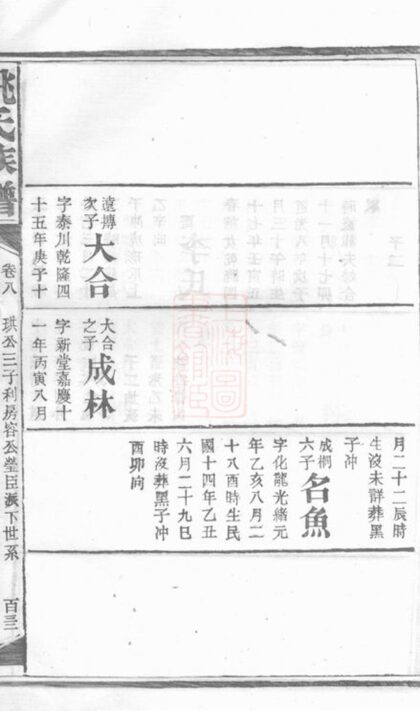 月二十二辰時
生沒未詳葬黑
子冲
成桐
六子
名魚
字化龍光緒元
年乙亥八月二
十八酉時生民
國十四年乙丑
六月二十九巳
時沒葬黑子冲
酉卯向
大合
之子
成林
字新堂嘉慶十
一年丙寅八月
遠摶
次子
大合
字泰川乾隆四
十五年庚子十
姚氏族譜
卷八
珙公三子利房容公瑩臣派下世系